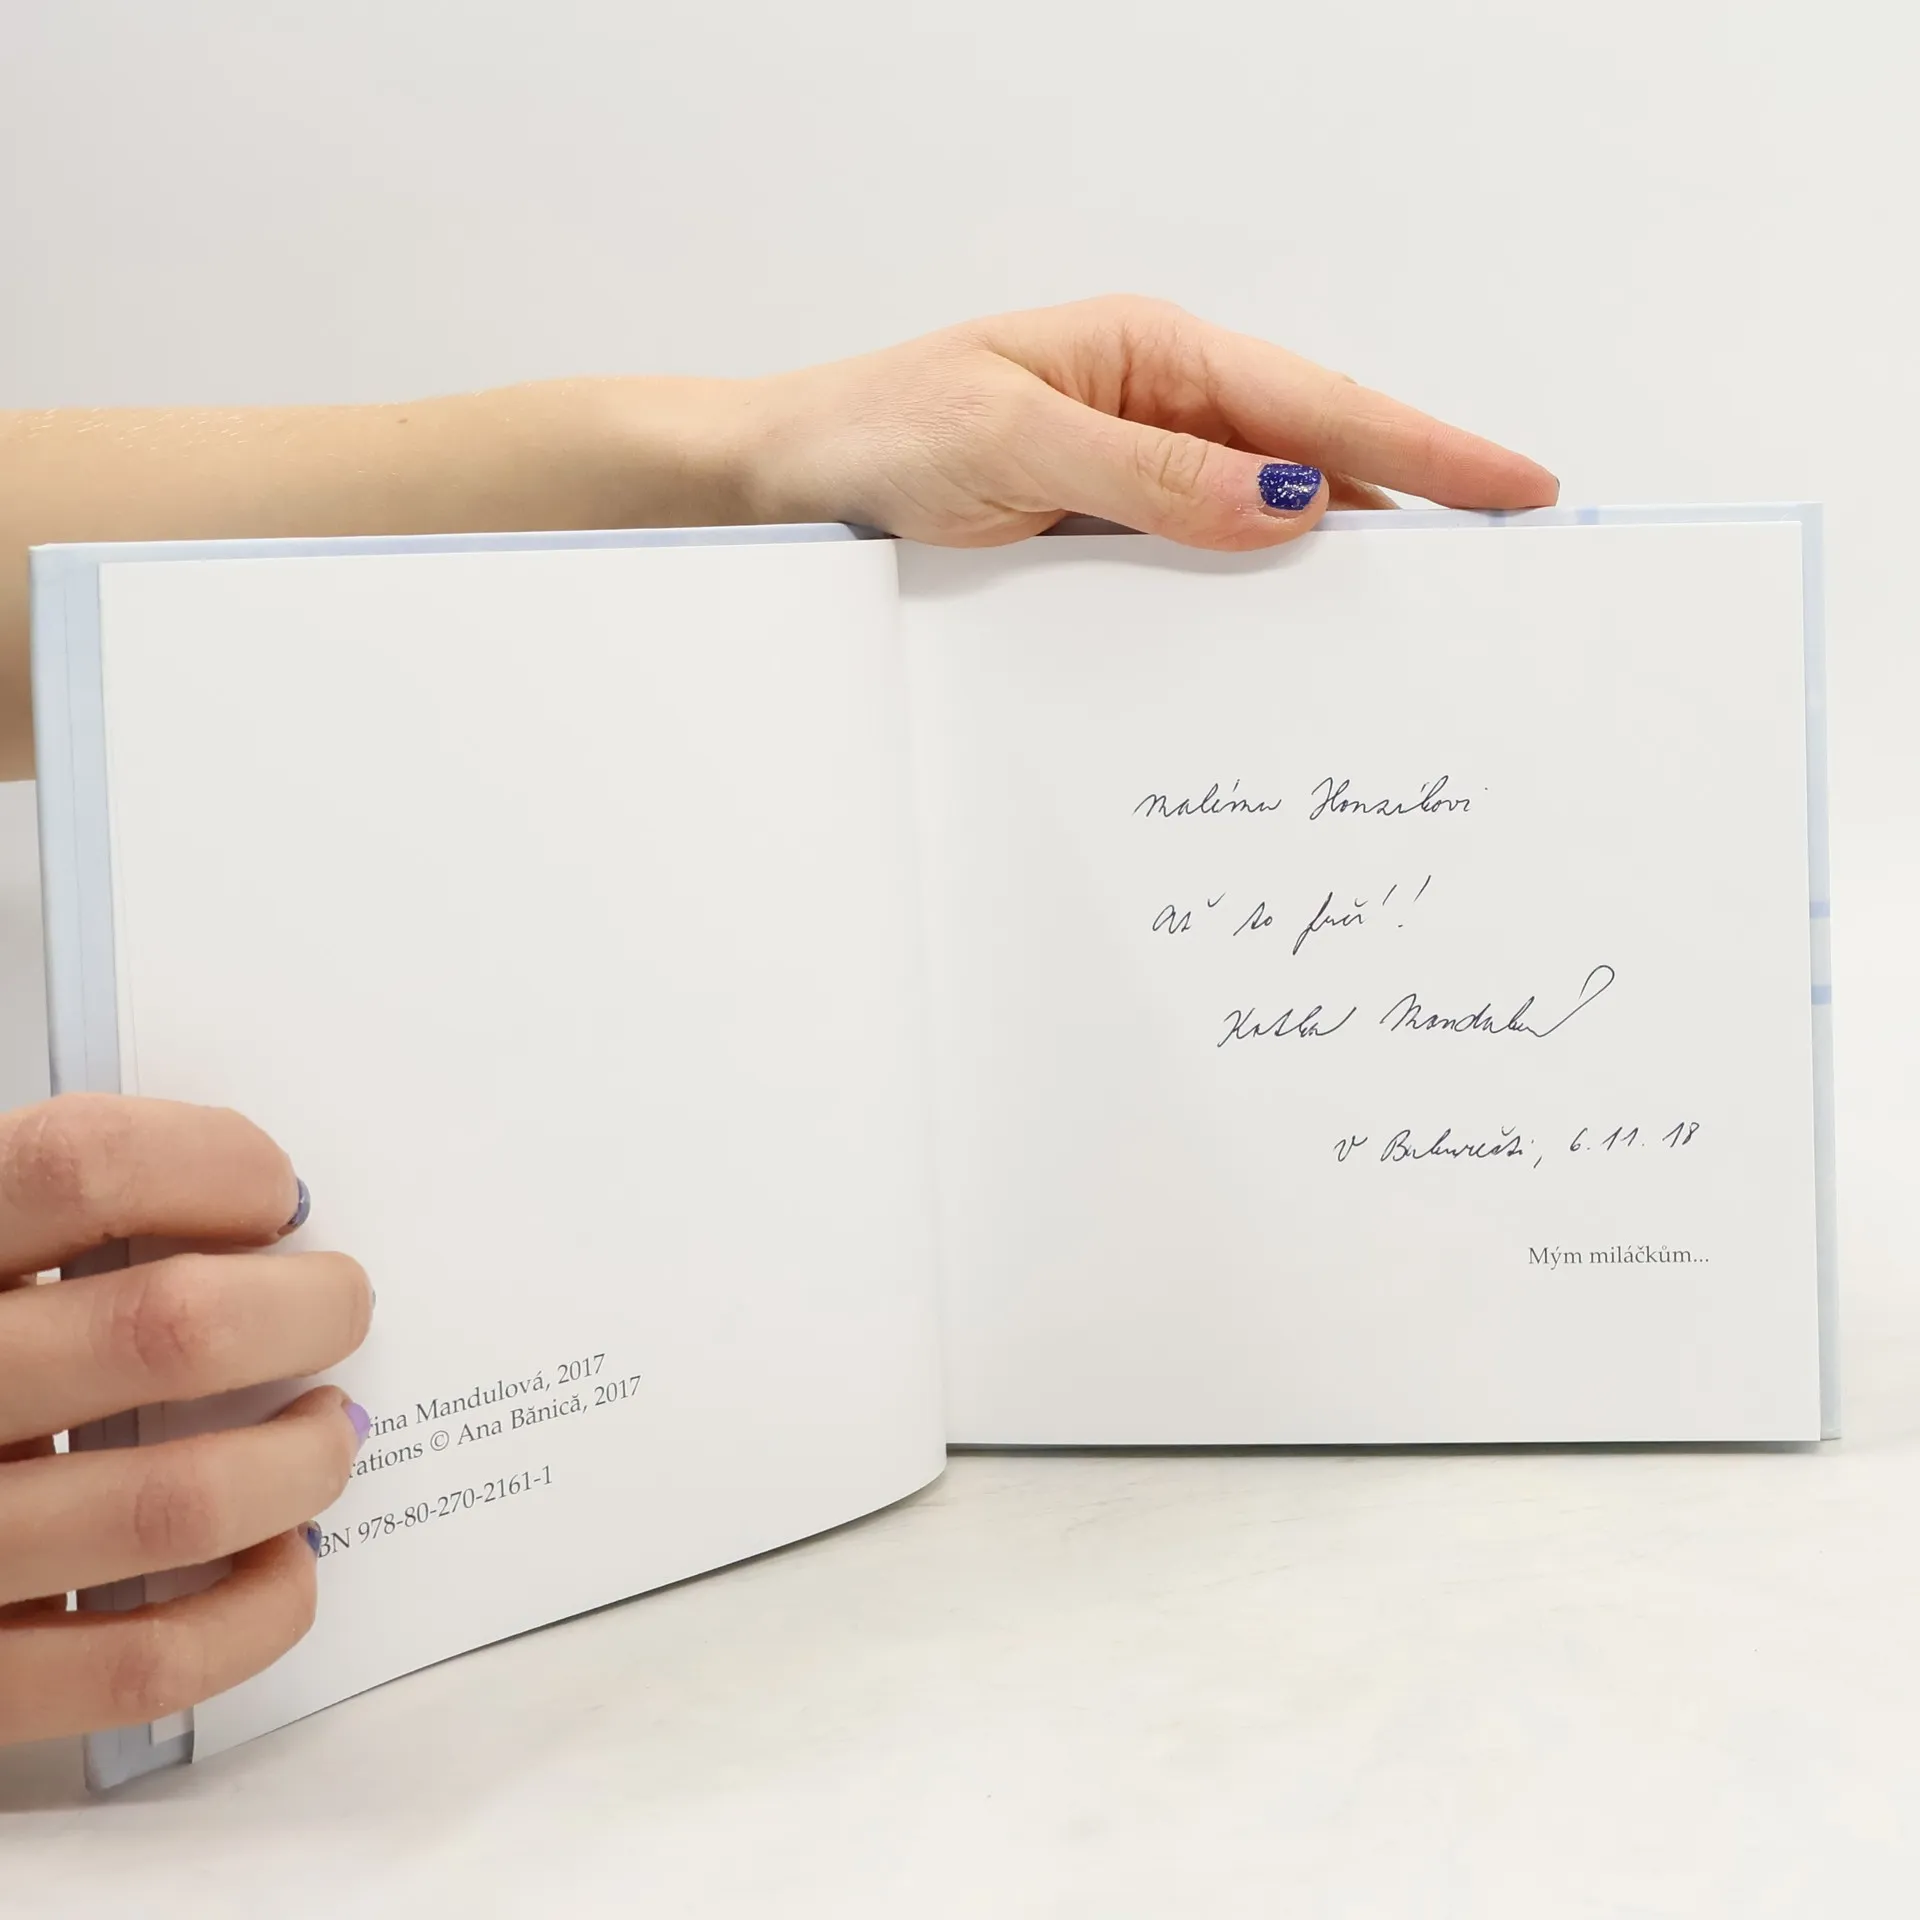 řina Mandulová, 2017
rations © Ana Bănică, 2017
BN 978-80-270-2161-1
Malému Honzíkovi
Ať to fučí!
Katka Mandulová
V Bukurešti, 6.11.18
Mým miláčkům...